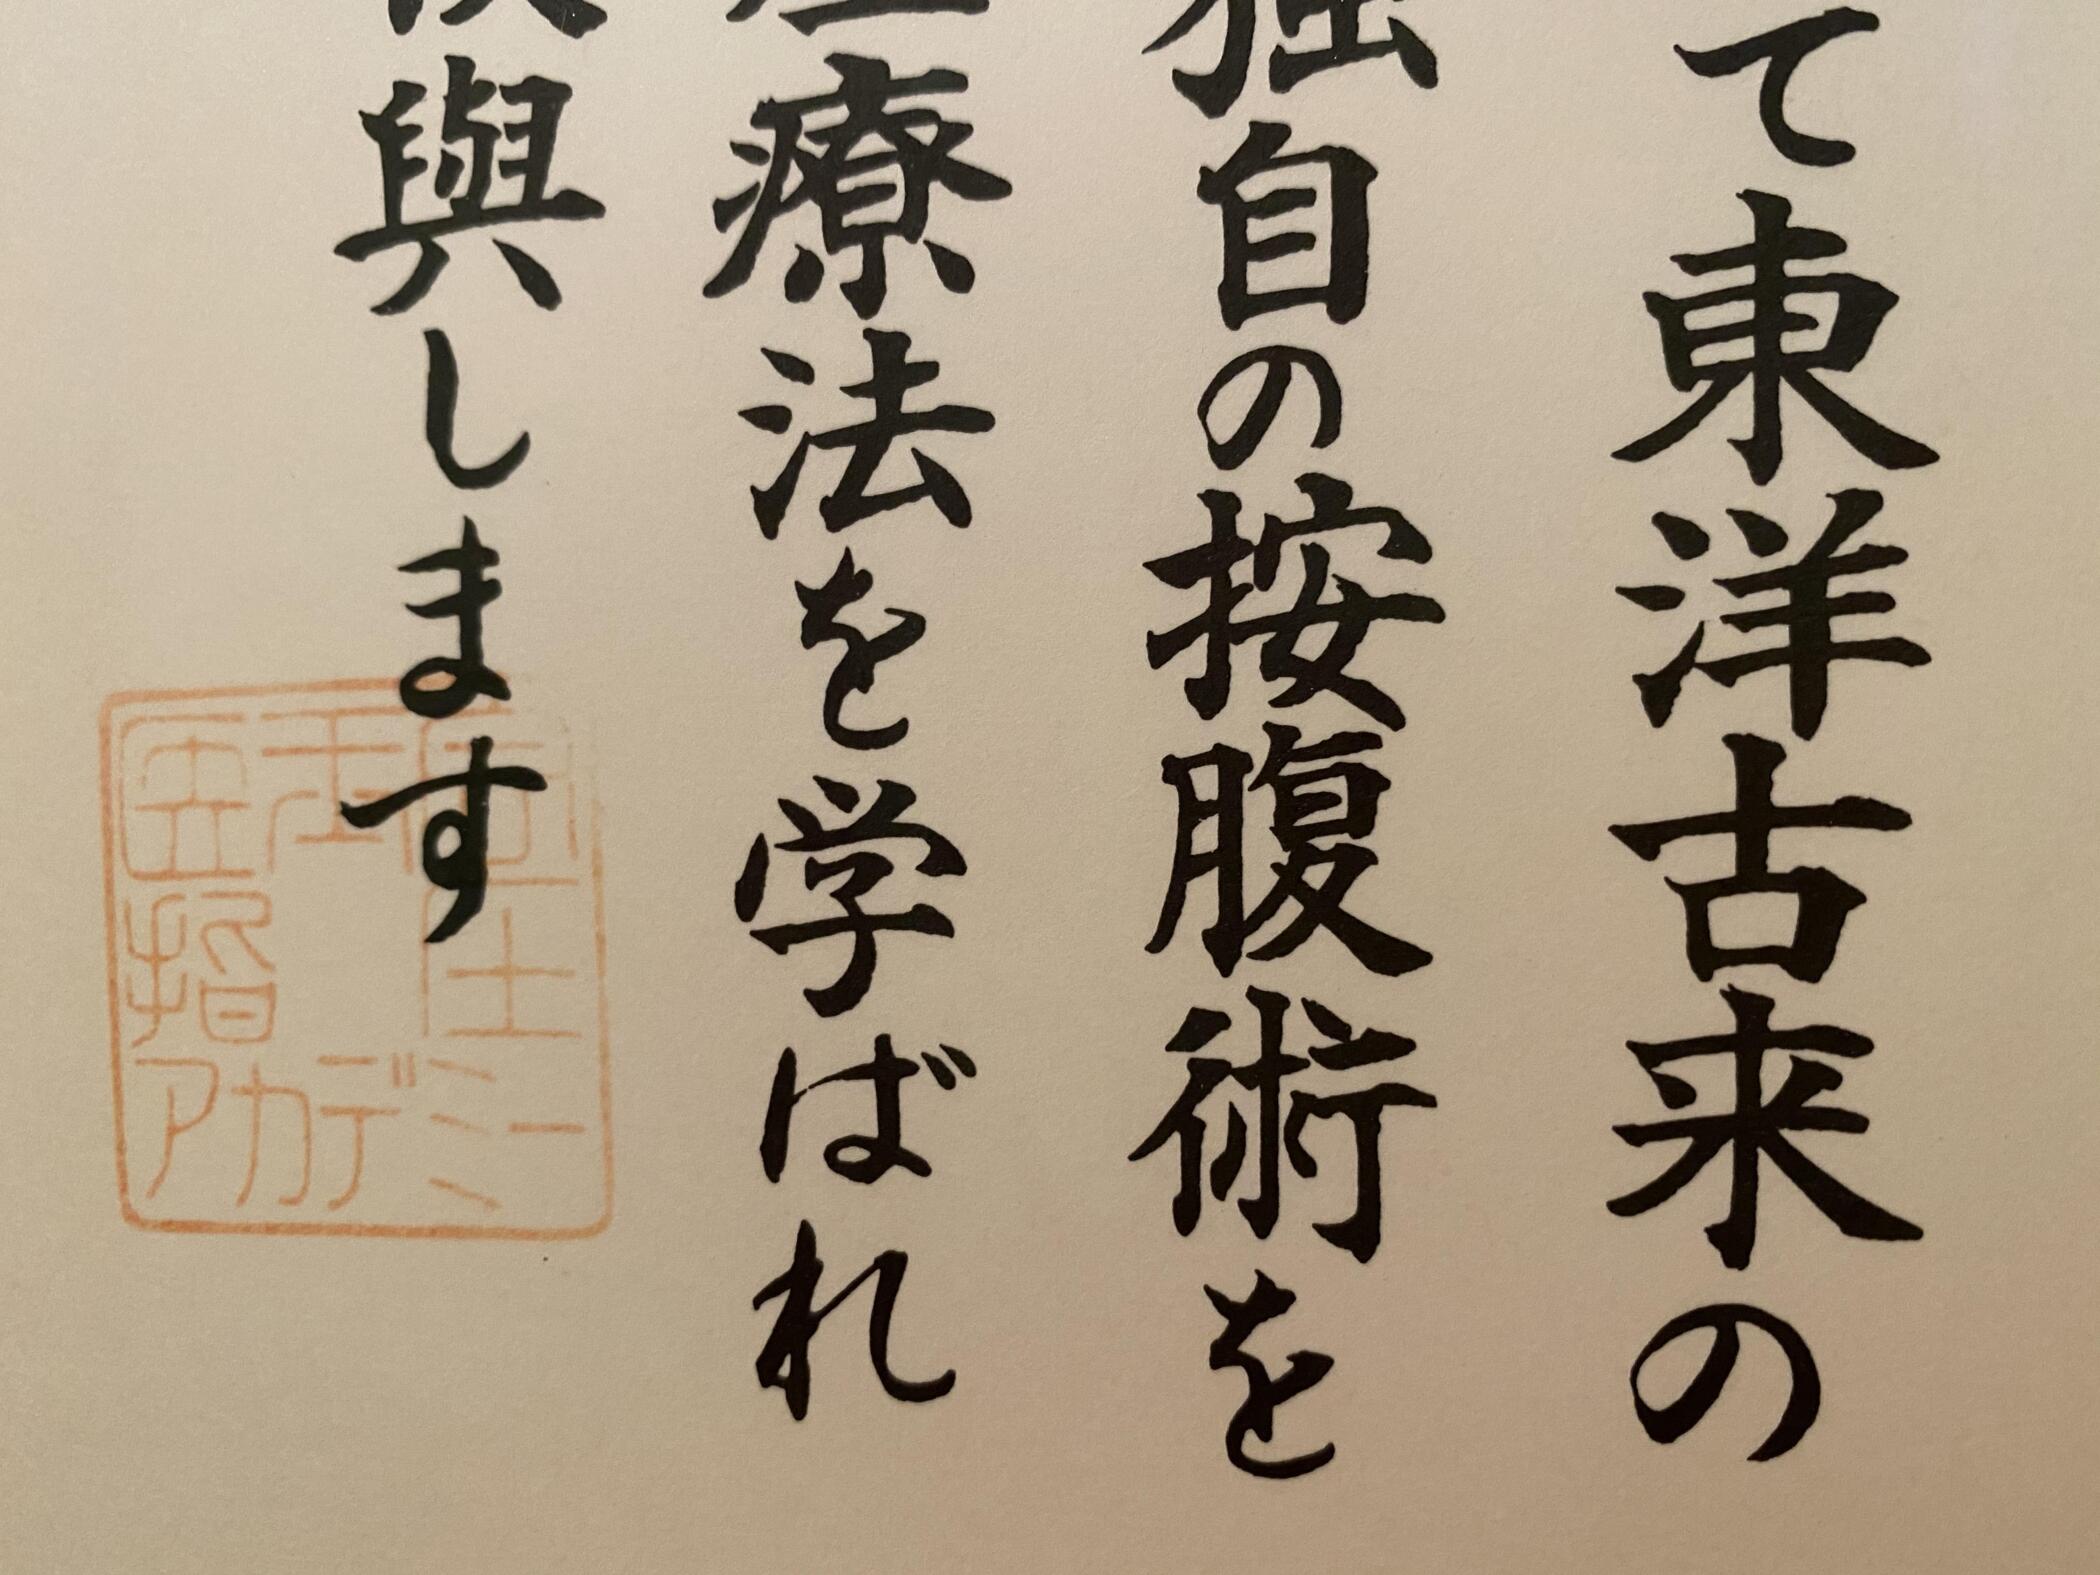 て東洋古来の
独自の按腹術を
療法を学ばれ
與します
五指
アカデミー